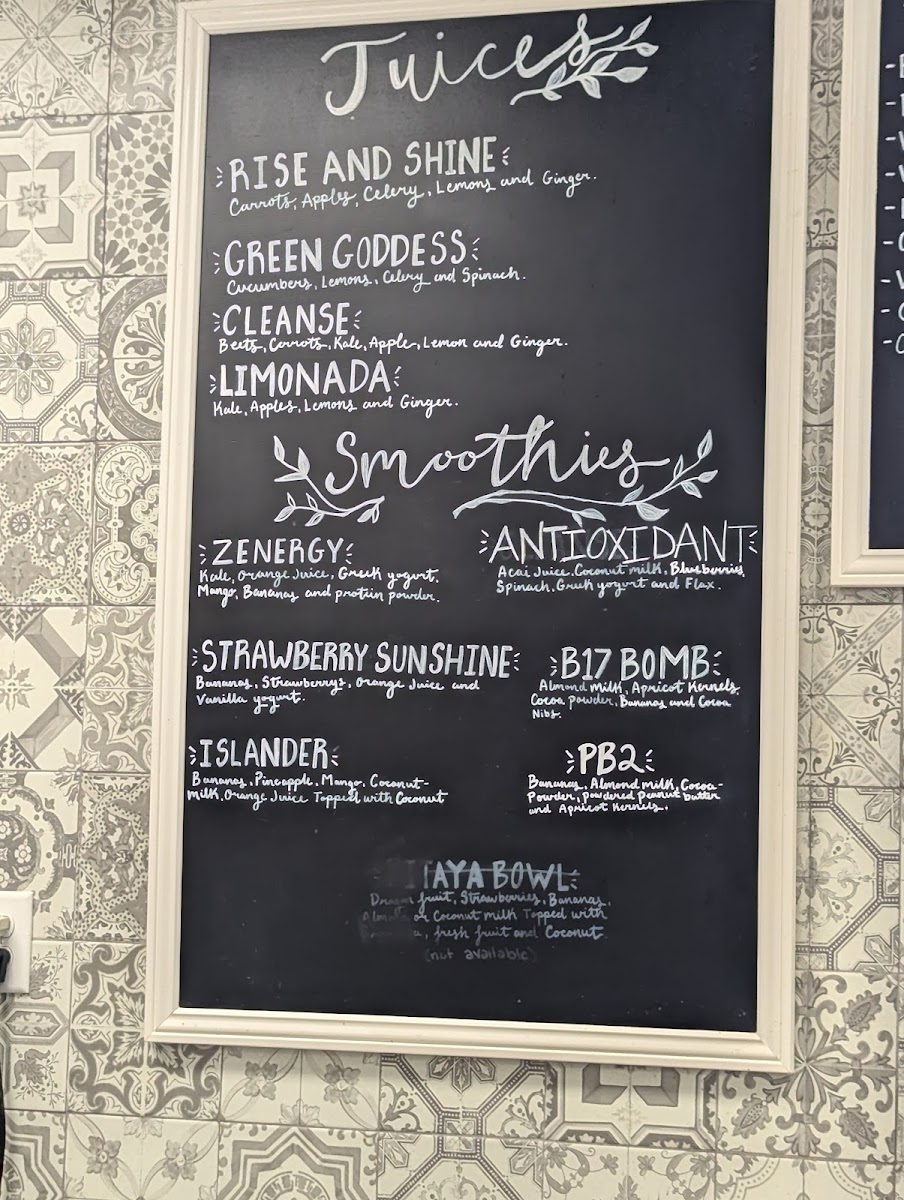 Juices
RISE AND SHINE
Carrots, Apples, Celery, Lemons and Ginger.
GREEN GODDESS
Cucumbers, Lemons, Celery and Spinach.
CLEANSE
Beets, Carrots, Kale, Apple, Lemon and Ginger.
LIMONADA
Kale, Apples, Lemons and Ginger.
Smoothies
ZENERGY
Kale, Orange Juice, Greek yogurt,
Mango, Bananas and protein powder.
ANTIOXIDANT
Acai Juice, Coconut milk, Blueberries,
Spinach, Greek yogurt and Flax.
STRAWBERRY SUNSHINE
Bananas, Strawberrys, Orange Juice and
Vanilla yogurt.
B17 BOMB
Almond Milk, Apricot Kernels,
Cocoa powder, Bananas and Cocoa
Nibs.
ISLANDER
Bananas, Pineapple, Mango, Coconut-
Milk, Orange Juice Topped with Coconut
PB2
Bananas, Almond milk, Cocoa-
Powder, powdered Peanut butter
and Apricot Kernels.
AYA BOWL
fruit, Strawberries, Bananas,
or Coconut milk Topped with
fresh fruit and Coconut
(not available)